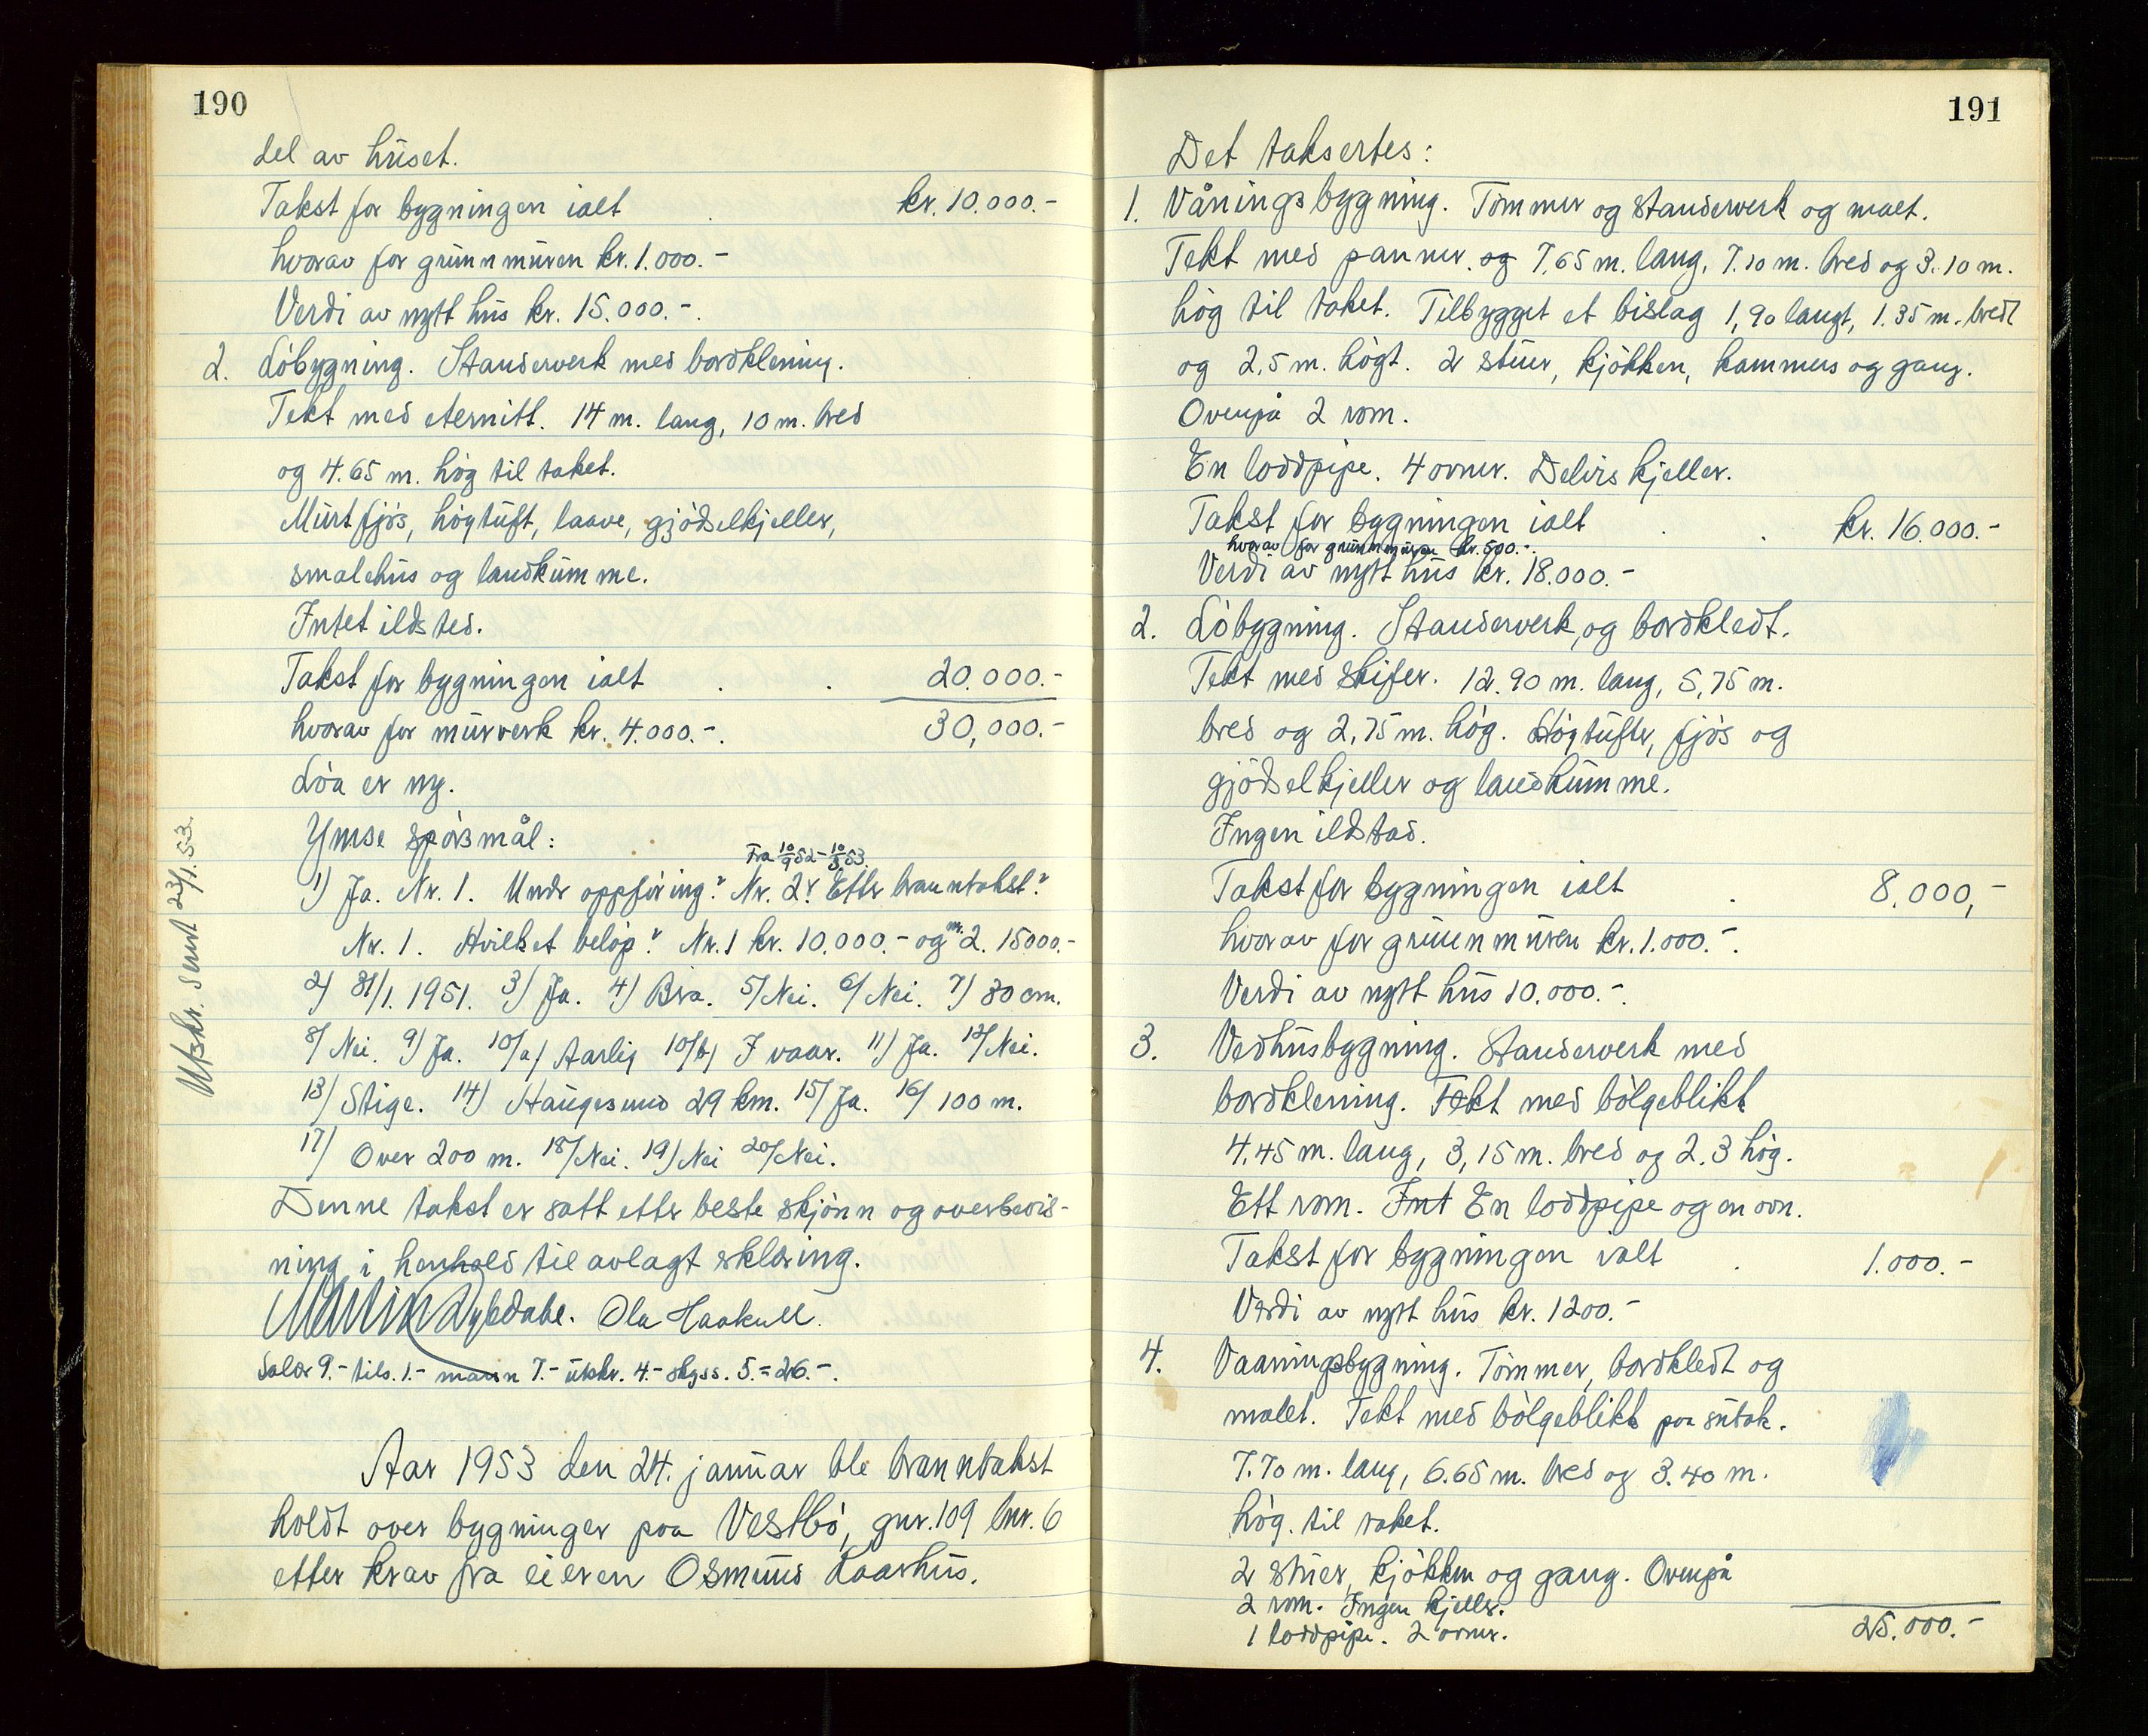 190
del av huset.
Takst for bygningen ialt . kr. 10.000.-
hvorav for grunnmuren kr. 1.000.-
Verdi av nytt hus kr. 15.000.-.
2. Löbygning. Standerverk med bordkledning.
Tekt med eternitt. 14 m. lang, 10 m. bred
og 4.65 m. hög til taket.
Murt fjös, höytuft, laave, gjödselkjeller,
smalehus og landkumme.
Intet ildsted.
Takst for bygningen ialt . . 20.000.-
hvorav for murverk kr. 4.000.-. 30,000.-
Löa er ny.
Ymse spörsmål:
Fra 10/9 52 - 10/3 53.
1) Ja. Nr. 1. Under oppföring? Nr. 2? Etter branntakst?
Nr. 1. Hvilket belöp? Nr. 1 kr. 10.000.- og nr. 2. 15000.-
2) 31/1. 1951. 3) Ja. 4) Bra. 5/ Nei. 6/ Nei. 7) 30 cm.
8/ Nei. 9) Ja. 10/a/ Aarlig 10/b/ I vaar. 11) Ja. 12/ Nei.
13) Stige. 14) Haugesund 29 km. 15/ Ja. 16/ 100 m.
17/ Over 200 m. 18/ Nei. 19) Nei 20/ Nei.
Denne takst er satt etter beste skjönn og overbevis-
ning i henhold til avlagt erklæring.
Martin Dybdahl. Ola Haakull.
Salær 9.- tils. 1.- mann 7.- utskr. 4.- skyss. 5. = 26.-.
Utskr. sendt 23/1.53.
Aar 1953 den 24. januar ble branntakst
holdt over bygninger paa Vestbö, gnr. 109 bnr. 6
etter krav fra eieren Osmund Laarhus.
191
Det taksertes:
1. Våningsbygning. Tömmer og standerverk og malt.
Tekt med panner og 7,65 m. lang, 7.10 m. bred og 3.10 m.
hög til taket. Tilbygget et bislag 1,90 langt, 1.35 m. bredt
og 2,5 m. högt. 2 stuer, kjökken, kammers og gang.
Ovenpå 2 rom.
En loddpipe. 4 ovner. Delvis kjeller.
Takst for bygningen ialt . . kr. 16.000.-
hvorav for grunnmuren kr. 500.-.
Verdi av nytt hus kr. 18.000.-
2. Löbygning. Standerverk, og bordkledt.
Tekt med skifer. 12.90 m. lang, 5,75 m.
bred og 2,75 m. hög. Höytufter, fjös og
gjödselkjeller og landkumme.
Ingen ildstad.
Takst for bygningen ialt . 8.000,-
hvorav for grunnmuren kr. 1.000.-.
Verdi av nytt hus 10.000.-.
3. Vedhusbygning. Standerverk med
bordkledning. Tekt med bölgeblikk
4.45 m. lang, 3,15 m. bred og 2.3 hög.
Ett rom. Int En loddpipe og en ovn.
Takst for bygningen ialt . 1.000.-
Verdi av nytt hus kr. 1200.-
4. Vaaningsbygning. Tömmer, bordkledt og
malet. Tekt med bölgeblikk paa sutak.
7.70 m. lang, 6.65 m. bred og 3.40 m.
hög. til taket.
2 stuer, kjökken og gang. Ovenpå
2 rom. Ingen kjeller.
1 loddpipe. 2 ovner. 25.000.-